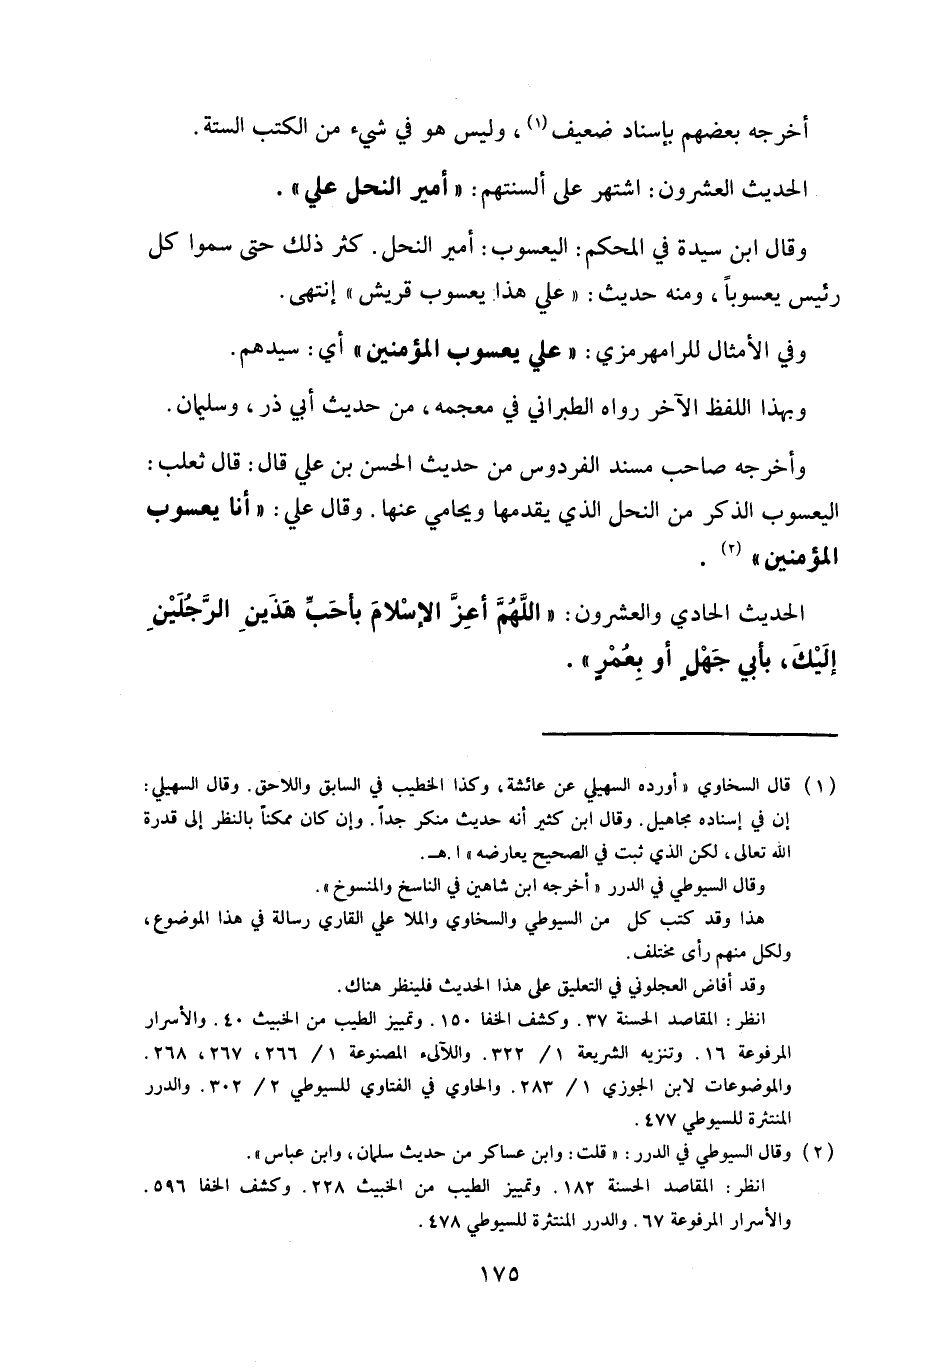 أخرجه بعضهم بإسناد ضعيف(١) ، وليس هو في شيء من الكتب الستة .
الحديث العشرون : اشتهر على ألسنتهم : « أمير النحل علي » .
وقال ابن سيدة في المحكم : اليعسوب : أمير النحل . كثر ذلك حتى سموا كل
رئيس يعسوباً ، ومنه حديث : « علي هذا يعسوب قريش » إنتهى .
وفي الأمثال للرامهرمزي : « علي يعسوب المؤمنين » أي : سيدهم .
وبهذا اللفظ الآخر رواه الطبراني في معجمه ، من حديث أبي ذر ، وسليمان .
وأخرجه صاحب مسند الفردوس من حديث الحسن بن علي قال : قال ثعلب :
اليعسوب الذكر من النحل الذي يقدمها ويحامي عنها . وقال علي : « أنا يعسوب
المؤمنين » (٢) .
الحديث الحادي والعشرون : « اللَّهُمَّ أعِزَّ الإسْلامَ بأحَبِّ هَذَينِ الرَّجُلَيْنِ
إلَيْكَ ، بأبي جَهْلٍ أو بِعُمْرٍ » .
(١) قال السخاوي « أورده السهيلي عن عائشة ، وكذا الخطيب في السابق واللاحق . وقال السهيلي :
إن في إسناده مجاهيل . وقال ابن كثير أنه حديث منكر جداً . وإن كان ممكناً بالنظر إلى قدرة
الله تعالى ، لكن الذي ثبت في الصحيح يعارضه » ا . هـ .
وقال السيوطي في الدرر « أخرجه ابن شاهين في الناسخ والمنسوخ » .
هذا وقد كتب كل من السيوطي والسخاوي والملا علي القاري رسالة في هذا الموضوع ،
ولكل منهم رأى مختلف .
وقد أفاض العجلوني في التعليق على هذا الحديث فلينظر هناك .
انظر : المقاصد الحسنة ٣٧ . وكشف الخفا ١٥٠ . وتمييز الطيب من الخبيث ٤٠ . والأسرار
المرفوعة ١٦ . وتنزيه الشريعة ١ / ٣٢٢ . واللآلىء المصنوعة ١ / ٢٦٦ ، ٢٦٧ ، ٢٦٨ .
والموضوعات لابن الجوزي ١ / ٢٨٣ . والحاوي في الفتاوي للسيوطي ٢ / ٣٠٢ . والدرر
المنتثرة للسيوطي ٤٧٧ .
(٢) وقال السيوطي في الدرر : « قلت : وابن عساكر من حديث سلمان ، وابن عباس » .
انظر : المقاصد الحسنة ١٨٢ . وتمييز الطيب من الخبيث ٢٢٨ . وكشف الخفا ٥٩٦ .
والأسرار المرفوعة ٦٧ . والدرر المنتثرة للسيوطي ٤٧٨ .
١٧٥